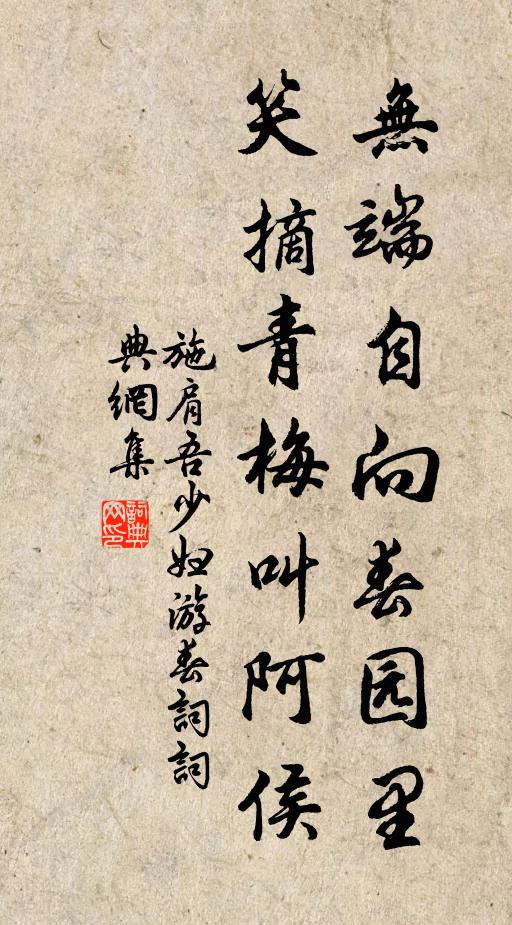 無端自向春园里
笑摘青梅叫阿侯
施肩吾少妇游春詞詞
典網集
詞典网印